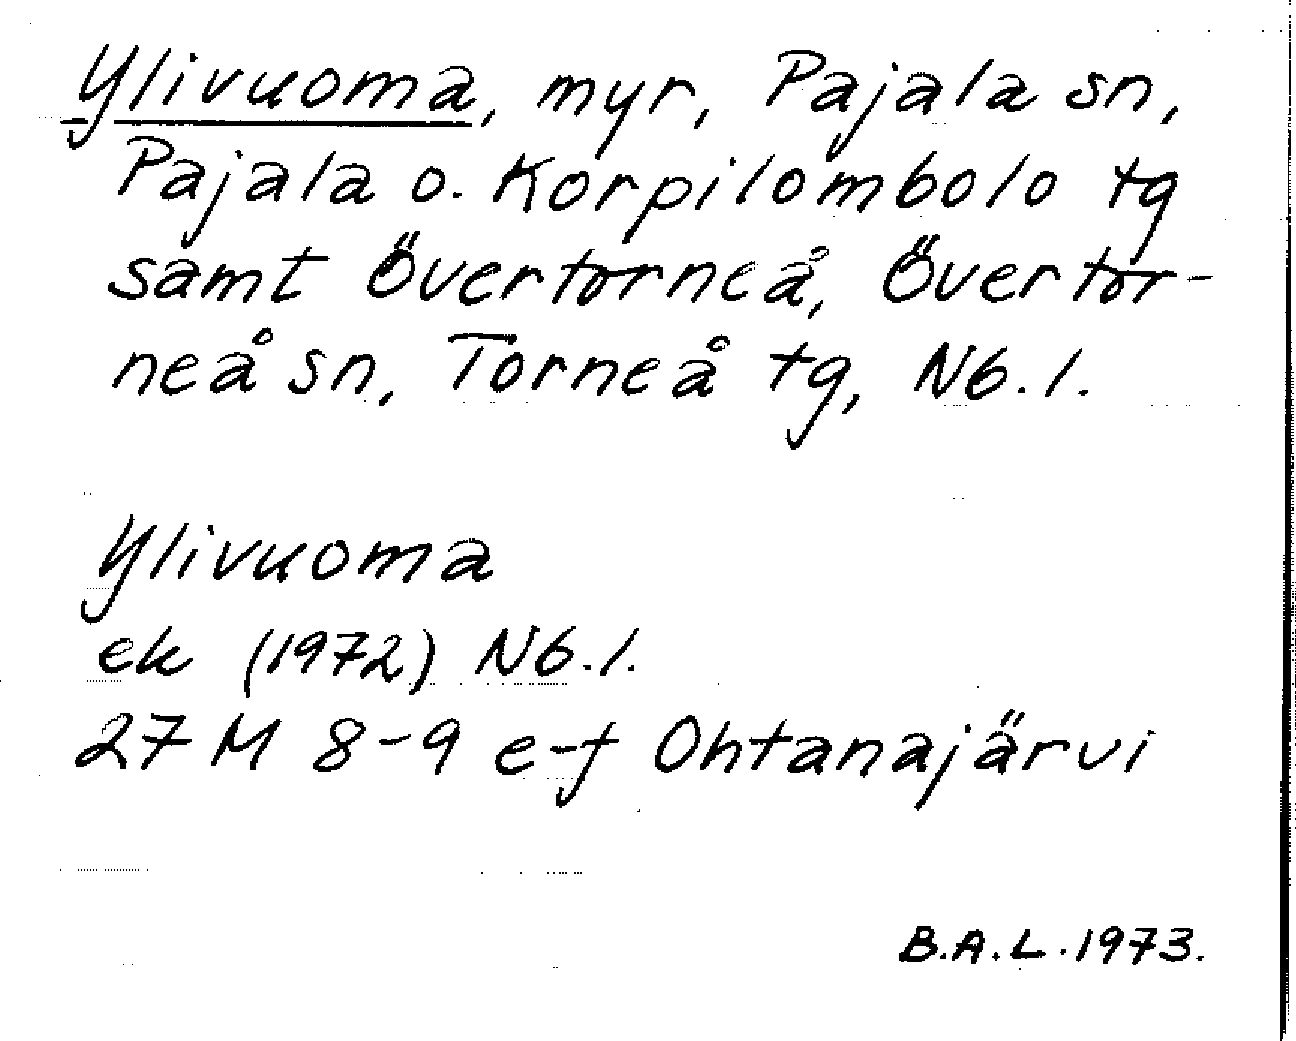 Ylivuoma, myr, Pajala sn,
Pajala o. Korpilombolo tg
samt Övertorneå, Övertor-
neå sn, Torneå tg, Nb. l.
Ylivuoma
ek (1972) Nb. l.
27 M 8-9 e-f Ohtanajärvi
B.A.L. 1973.